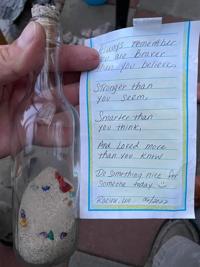 Always remember
you are Braver
than you believe,
Stronger than
you seem,
Smarter than
you think,
And Loved more
than you know
Do something nice for
someone today. ☺
Racine, WI